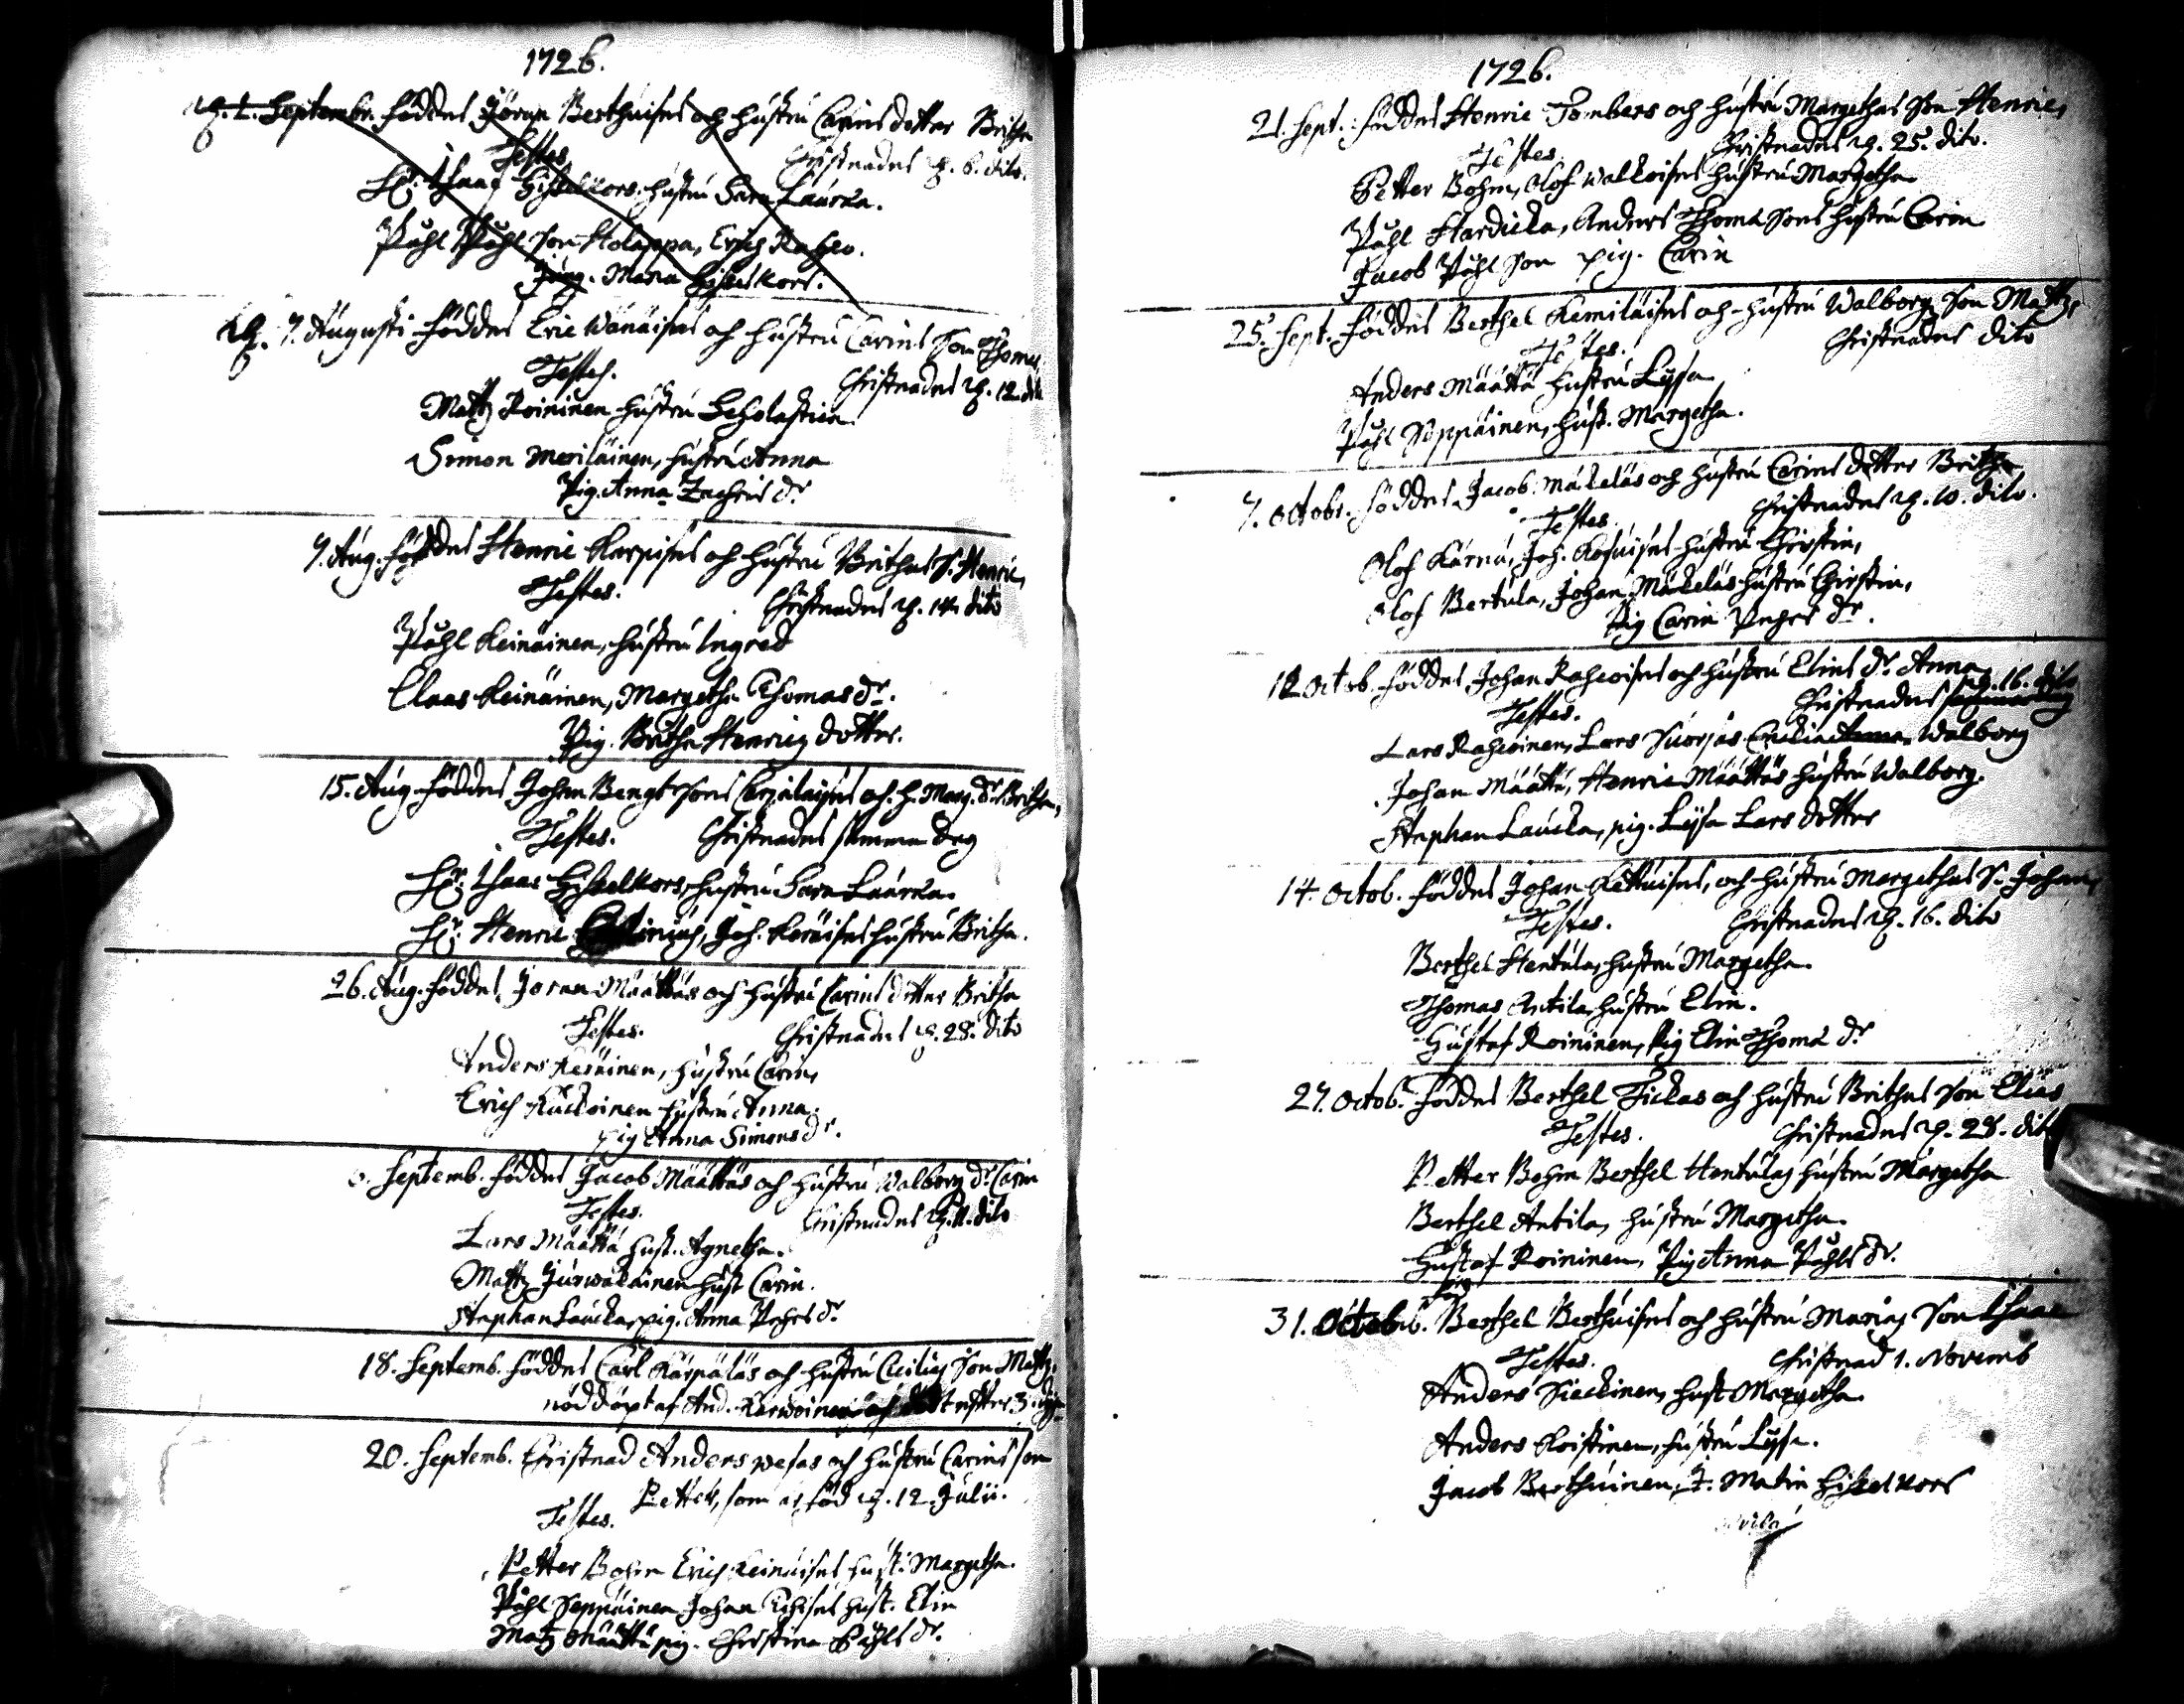 1726.
d. 2. Septembr. föddes Jöran Berthuises och hustru Carins dotter Britha
Testes Christnades d. 6. dito.
Hr. Isaac Hisselkors hustru Sara Laurea.
Påhl Påhlson Holappa, Erich Raheo.
Jung. Maria Hisselkors.
d. 7. Augusti föddes Eric Wänäises och hustru Carins Son Thomas
Testes. Christnades d. 12 dito
Mattz Roininen hustru Scholastica
Simon Meriläinen, hustru Anna
Pig. Anna Zachris dr
9. Aug. föddes Henric Karpises och hustru Brithas S. Henric,
Testes. Christnades d. 14 dito
Påhl Keinäinen, hustru Ingred
Claas Keinäinen, Margetha Thomas dr.
Pig. Britha Henrics dotter.
15. Aug. föddes Johan Bengtsons Carjalaises och h. Marg. dr. Britha,
Testes. Christnades samma dag
Hr. Isaac Hisselkors, hustru Sara Laurea.
Hr. Henric Joh. Keräises hustru Britha.
26. Aug. föddes Jöran Määttäs och hustru Carins dotter Britha
Testes. Christnades d. 28. dito
Anders Keräinen, hustru Carin,
Erich Kuckoinen hustru Anna.
pig Anna Simons dr.
Septemb. föddes Jacob Määttäs och hustru Walborg dr. Carin
Testes. Christnades d. 11. dito
Lars Määttä hust. Agnetha.
Mattz Jurwakainen hust Carin.
Staphan Laucka, pig. Anna Pehrs dr
18. Septemb. föddes Carl Kärpäläs och hustru Cicilias Son Mattz,
nöddöpt af And. Karwoinen och efter 3.
20. Septemb. Christnad Anders vesas och hustru Carins son
Petter, som är föd d. 12 Julii.
Testes.
Petter Bohm Erich Keinäises hust. Margetha.
Påhl Seppäinen Johan Kihises hust. Elin
Matz Määttä pig. Christina Påhls dr.
1726.
21. Sept. föddes Henric Tombers och hustru Margethas Son Henric,
Testes. Christnades d. 25. dito.
Petter Bohm, Olof Walkoises hustru Margetha
Påhl Hardicka, Anders Thomasons hustru Carin
Jacob Påhlson pig. Carin
25. Sept. föddes Berthel Kemiläises och hustru Walborg Son Mattz,
Testes. Christnades dito
Anders Määttä hustru Lysa
Påhl Seppäinen, hust. Margetha.
7. Octobr. föddes Jacob Mäkeläs och hustru Carins dotter Britha
Testes Christnades d. 10. dito.
Olof Kärnä, Joh. Kosuises hustru Christin,
Olof Bertula, Johan Mäkeläs hustru Christin,
Pig Carin Pehrs dr.
12 Octob. föddes Johan Rahcoises och hustru Elins dr. Anna
Testes. Christnades samma dag d. 16. dito
Lars Rahcoinen, Lars Suorjas Cicilia Anna Walborg
Johan Määttä, Henric Määttäs hustru Walborg.
Staphan Laucka, pig. Lysa Lars dotter
14. Octob. föddes Johan Kettuises, och hustru Margethas S. Johan,
Testes. Christnades d. 16. dito
Berthel Hentula, hustru Margetha.
Thomas Antila, hustru Elin.
Gustaf Roininen, Pig Elin Thoma dr
27. Octob. föddes Berthel Fickas och hustru Brithas Son Elias
Testes. Christnades d. 28. dito
Petter Bohm Berthel Hentulas hustru Margetha
Berthel Antila, hustru Margetha.
Gustaf Roininen, Pig Anna Påhls dr.
31. Octobr. föd Berthel Berthuises och hustru Marias Son Isaac
Testes. Christnad 1. Novemb
Anders Kieckinen, hust Margetha.
Anders Koistinen, hustru Lysa.
Jacob Berthuinen, J. Malin Hisselkors